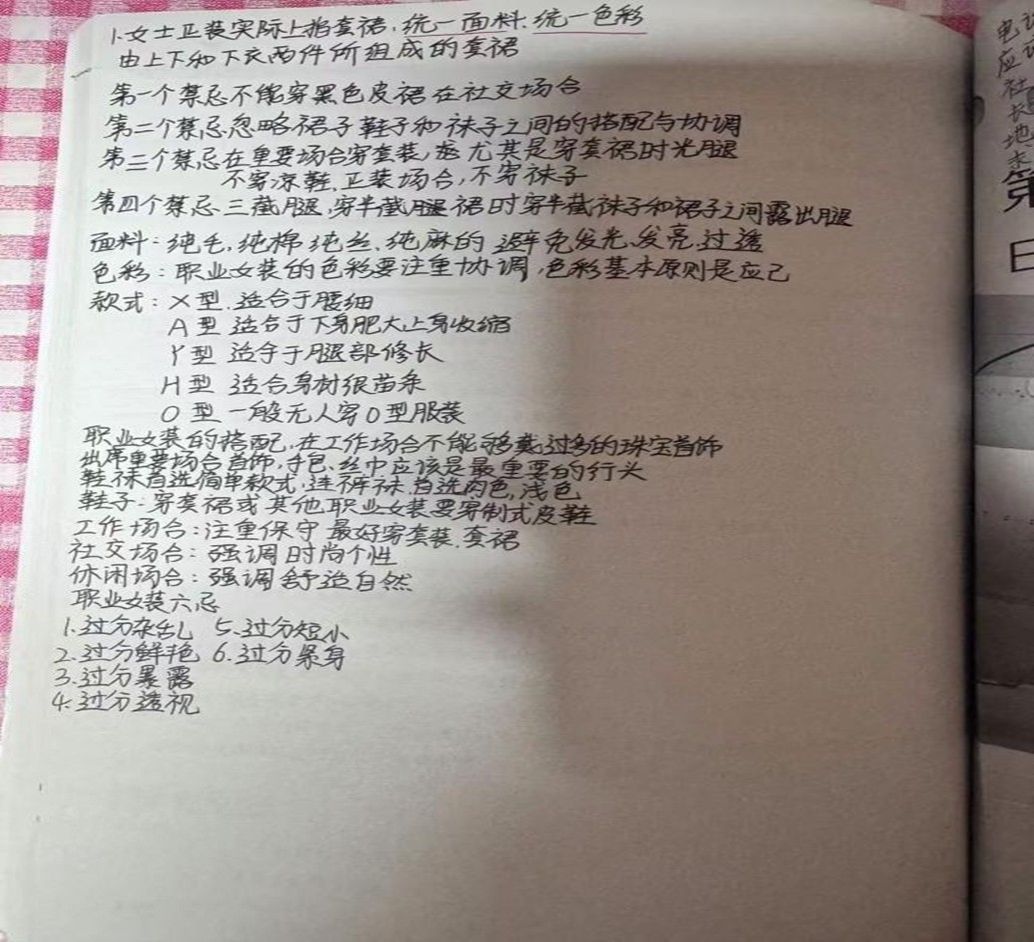 1.女士正装实际上指套裙,统一面料.统一色彩
由上下和下衣两件所组成的套裙
第一个禁忌不能穿黑色皮裙在社交场合
第二个禁忌忽略裙子鞋子和袜子之间的搭配与协调
第三个禁忌在重要场合穿套装,尤其是穿套裙时光腿
不穿凉鞋.正装场合,不穿袜子
第四个禁忌三截腿,穿半截腿裙时穿半截袜子和裙子之间露出腿
面料:纯毛,纯棉纯丝、纯麻的避免发光、发亮.过透
色彩:职业女装的色彩要注重协调,色彩基本原则是应己
款式:X型.适合于腰细
A型 适合于下身肥大上身收缩
Y型 适合于腿部修长
H型 适合身材很苗条
O型 一般无人穿O型服装
职业女装的搭配,在工作场合不能移戴过多的珠宝首饰
出席重要场合首饰,手包、丝巾应该是最重要的行头
鞋袜首选简单款式,连裤袜.首选肉色,浅色
鞋子:穿套裙或其他职业女装要穿制式皮鞋
工作场合:注重保守 最好穿套装.套裙
社交场合:强调时尚个性
休闲场合:强调舒适自然
职业女装六忌
1.过分杂乱 5.过分短小
2.过分鲜艳 6.过分紧身
3.过分暴露
4.过分透视
电
应
社
长
地
第